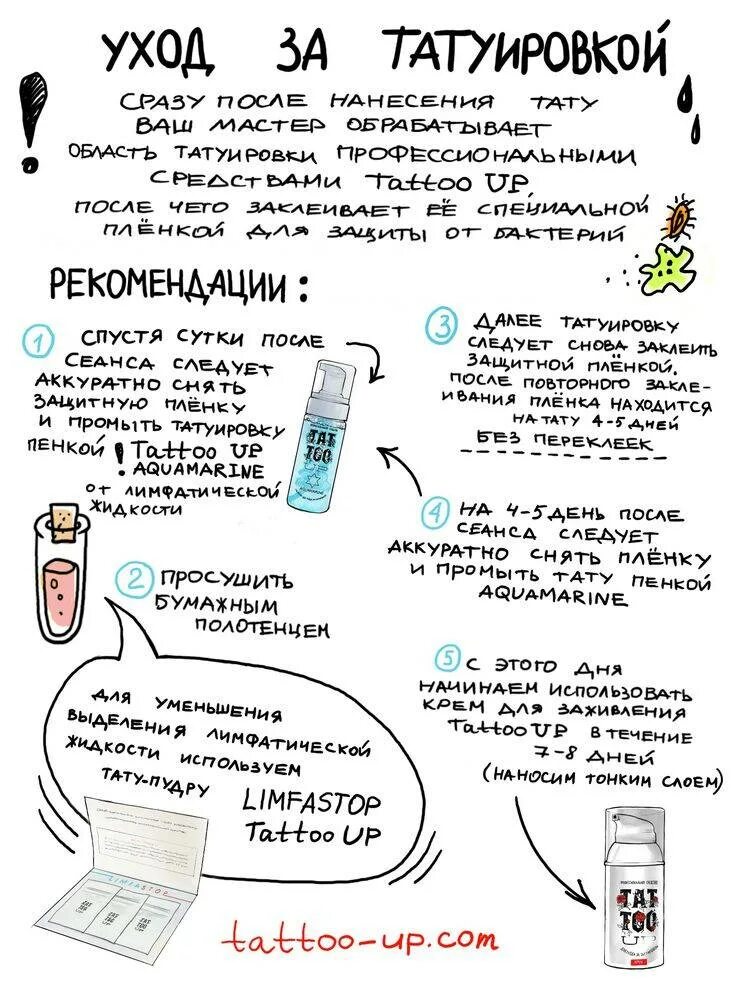 УХОД ЗА ТАТУИРОВКОЙ
СРАЗУ ПОСЛЕ НАНЕСЕНИЯ ТАТУ
ВАШ МАСТЕР ОБРАБАТЫВАЕТ
ОБЛАСТЬ ТАТУИРОВКИ ПРОФЕССИОНАЛЬНЫМИ
СРЕДСТВАМИ Tattoo UP,
ПОСЛЕ ЧЕГО ЗАКЛЕИВАЕТ ЕЁ СПЕЦИАЛЬНОЙ
ПЛЁНКОЙ ДЛЯ ЗАЩИТЫ ОТ БАКТЕРИЙ
РЕКОМЕНДАЦИИ:
1 СПУСТЯ СУТКИ ПОСЛЕ
СЕАНСА СЛЕДУЕТ
АККУРАТНО СНЯТЬ
ЗАЩИТНУЮ ПЛЁНКУ
И ПРОМЫТЬ ТАТУИРОВКУ
ПЕНКОЙ ! Tattoo UP
AQUAMARINE
ОТ ЛИМФАТИЧЕСКОЙ
ЖИДКОСТИ
TAT
TOO
2 ПРОСУШИТЬ
БУМАЖНЫМ
ПОЛОТЕНЦЕМ
ДЛЯ УМЕНЬШЕНИЯ
ВЫДЕЛЕНИЯ ЛИМФАТИЧЕСКОЙ
ЖИДКОСТИ ИСПОЛЬЗУЕМ
ТАТУ-ПУДРУ
LIMFASTOP
Tattoo UP
LIMFASTOP
3 ДАЛЕЕ ТАТУИРОВКУ
СЛЕДУЕТ СНОВА ЗАКЛЕИТЬ
ЗАЩИТНОЙ ПЛЁНКОЙ.
ПОСЛЕ ПОВТОРНОГО ЗАКЛЕ-
ИВАНИЯ ПЛЁНКА НАХОДИТСЯ
НА ТАТУ 4-5 ДНЕЙ
БЕЗ ПЕРЕКЛЕЕК
4 НА 4-5 ДЕНЬ ПОСЛЕ
СЕАНСА СЛЕДУЕТ
АККУРАТНО СНЯТЬ ПЛЁНКУ
И ПРОМЫТЬ ТАТУ ПЕНКОЙ
AQUAMARINE
5 С ЭТОГО ДНЯ
НАЧИНАЕМ ИСПОЛЬЗОВАТЬ
КРЕМ ДЛЯ ЗАЖИВЛЕНИЯ
Tattoo UP В ТЕЧЕНИЕ
7-8 ДНЕЙ
(НАНОСИМ ТОНКИМ СЛОЕМ)
TAT
TOO
UP
tattoo-up.com